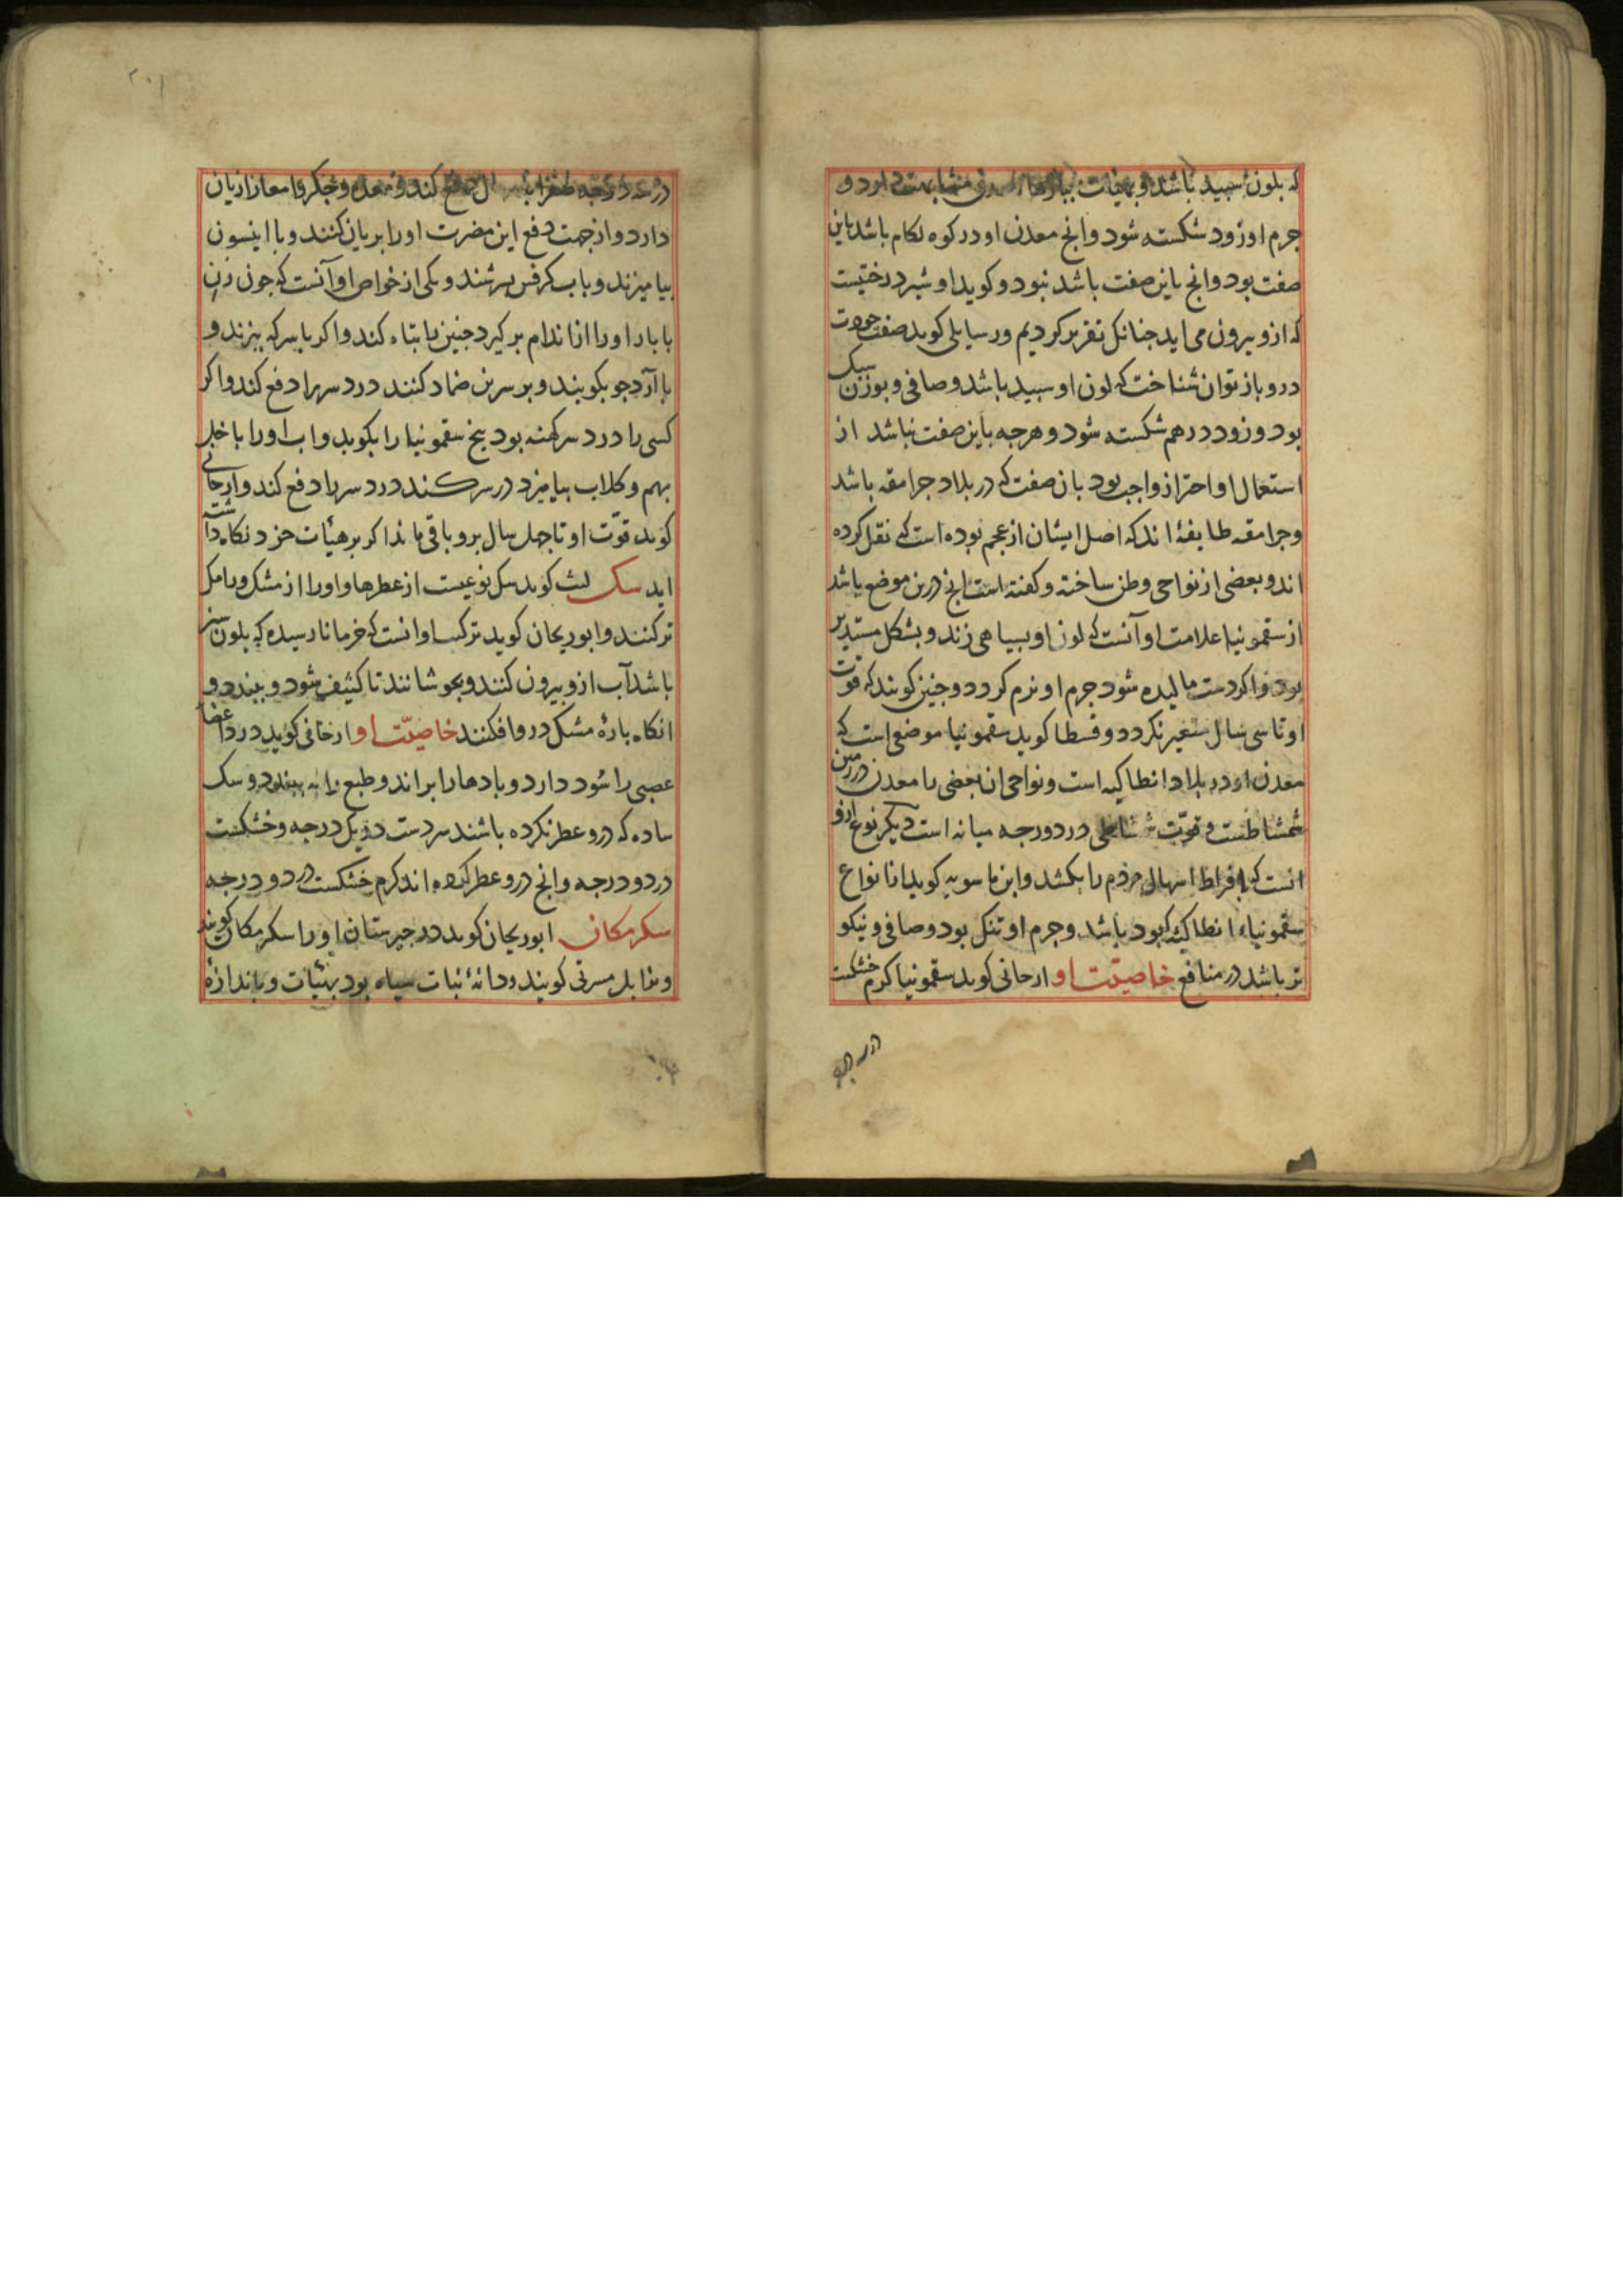 که بلون سپید باشد و بهیئات
جرم او زود شکسته شود وانچ معدن او در کوه لکام باشد باین
صفت بود وانچ باین صفت باشد نبود و کوید او شیر درختیست
که ازو بیرون می اید جنانک تقریر کردیم ورسایلی کوید صفت جودت
درو باز توان شناخت که لون او سپید باشد و صافی و بوزن سبک
بود و زود درهم شکسته شود و هرجه باین صفت نباشد از
استعمال او احتراز واجب بود بان صفت که در بلاد جرامقه باشد
وجرامقه طایفۀ اند که اصل ایشان از عجم بوده است که نقل کرده
اند و بعضی از نواحی وطن ساخته و کفته است انچ درین موضع باشد
از سقمونیا علامت او آنست که لون او بسیاهی زند و بشکل مستدیر
بود و اکر دست مالیده شود جرم او نرم کردد و جنین کویند که قوت
او تا سی سال متغیر نکردد و قسطا کوید سقمونیا موضعی است که
معدن او در بلاد انطاکیه است و نواحی ان بعضی را معدن در زمین
شمشاطست و قوّت در دو درجه میانه است دیکر نوع ازو
انست که بافراط اسهال مردم را بکشد وابن ماسویه کوید از انواع
سقمونیاء انطاکیه کبود باشد وجرم او تنک بود و صافی و نیکو
تر باشد در منافع خاصیّت او ارجانی کوید سقمونیا کرم خشکست
در سه درجه
۲۰۱
در سه درجه دفع کند و معده و جکر و امعا را زیان
دارد و از جهت دفع این مضرت او را بریان کنند و با انیسون
بیامیزند و باب کرفس بسرشند و یکی از خواص او آنست که جون زن
با بار او را از اندام بر کیرد جنین را تباه کند و اکر با سرکه بپزند و
با آرد جو بکوبند و بر سرین ضماد کنند درد سر را دفع کند و اکر
کسی را درد سر کهنه بود بیخ سقمونیا را بکوبد و اب او را با خل
بهم و کلاب بیامیزد در سر کند درد سر را دفع کند و ارجانی
کوید قوّت او تا جهل سال برو باقی ماند اکر بر هیأت خود نکاه داشته
اید سک لیث کوید سک نوعیست از عطرها و او را از مشک و رامک
ترکنند و ابوریحان کوید ترکیب او انست که خرما نارسیده که بلون سبز
باشد آب ازو بیرون کنند و بجوشانند تا کثیف شود و ببندد و
انکاه بارۀ مشک درو افکنند خاصیّت او ارجانی کوید درد اعضاء
عصبی را سود دارد و بادها را براند و طبع را به بندد و سک
ساده که درو عطر نکرده باشند سردست در یک درجه و خشکست
در دو درجه وانچ درو عطر کرده اند کرم خشکست در دو درجه
سکرمکان ابوریحان کوید در جبرستان او را سکرمکان کویند
و بزابل مسرتی کویند و دانۀ نبات سیاه بود بهیئات و باندازۀ